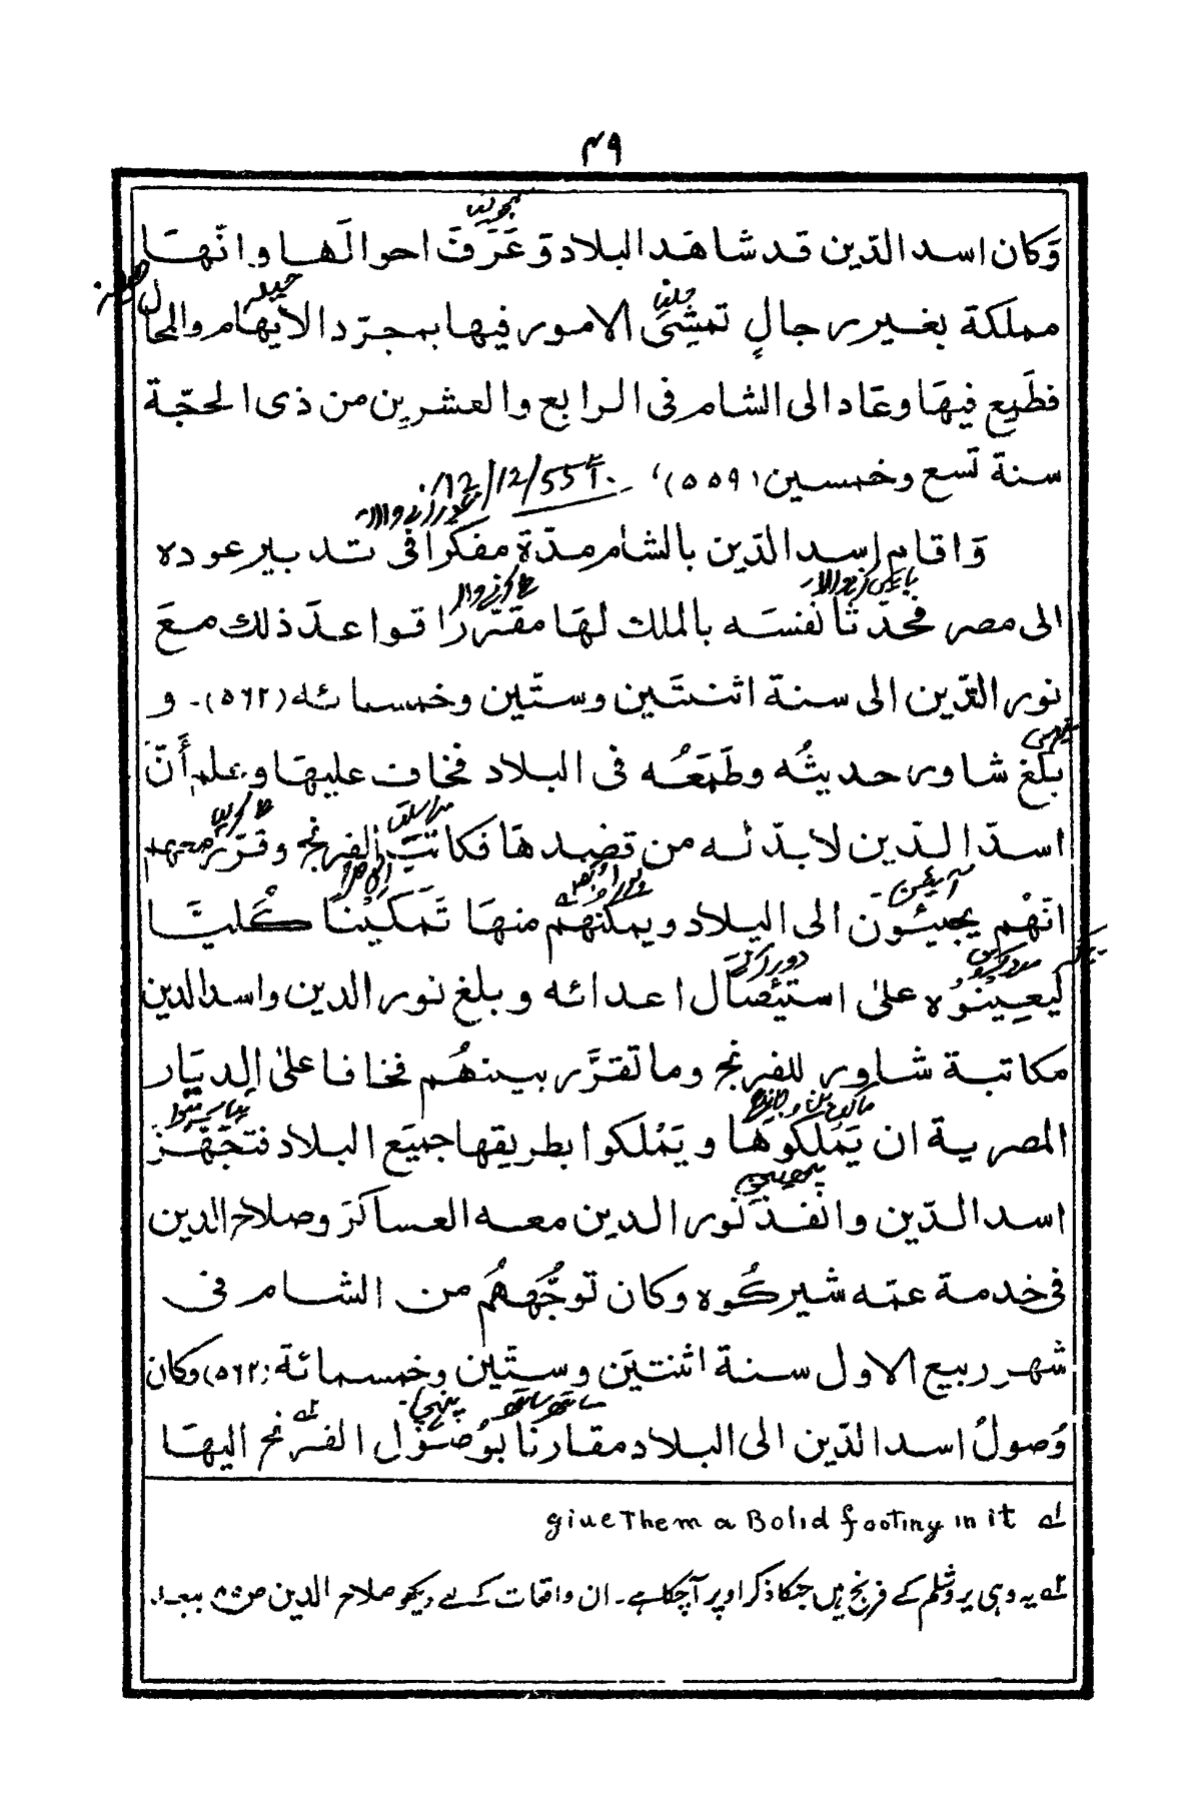 ۴۹
وَكان اسد الدّين قد شاهَد البلاد وَعَرَفَ احوالَها وانّهَا
مملكة بغير رجالٍ تمشِی الامور فيها بمجرّد الايهام والمحال
فطَمِع فيهَا وعَاد الى الشام فى الرابع والعشرِين من ذى الحجّة
سنة تسع وخمسين (٥٥٩)، 12/12/55
وَاقام اسد الدّين بالشام مدّة مفكّرا فى تدبير عوده
الى مصر محدّثا نفسَه بالملك لهَا مقرّرا قواعدَ ذلك معَ
نور الدّين الى سنة اثنتَين وستّين وخمسمائه (٥٦٢)۔ و
بلغ شاور حديثُه وطَمَعُه فى البلاد فخاف عليهَا وعلم أَنّ
اسدَ الدّين لابدّ له من قصدهَا فكاتبَ الفرنج وقرّر معهم
انّهُم يجيئون الى البلاد ويمكنهم منهَا تَمكينًا كُليّا
ليعِينوُه على استيصَال اعدائه وبلغ نور الدين واسد الدين
مكاتبة شاور للفرنج وما تقرَّر بينهُم فخافا على الديَار
المصرية ان يَملكوهَا ويَمْلكوا بطريقها جميَع البلاد فتجَهّزَ
اسد الدّين وانفذ نور الدين معه العساكرَ وصلاح الدين
فى خدمة عمّه شيركُوه وكان توجُّهُهُم من الشام فى
شهر ربيع الاول سنة اثنتيَن وستّين وخمسمائة (٥٦٢) وكان
وُصولُ اسد الدّين الى البلاد مقارنًا بوُصُول الفرنج اليهَا
giue Them a Bolid footing in it ۱ے
۲ے یہ وہی یروشلم کے فرنج ہیں جنکا ذکر اوپر آچکا ہے۔ ان واقعات کے لیے دیکھو صلاح الدین ص ببعد۔